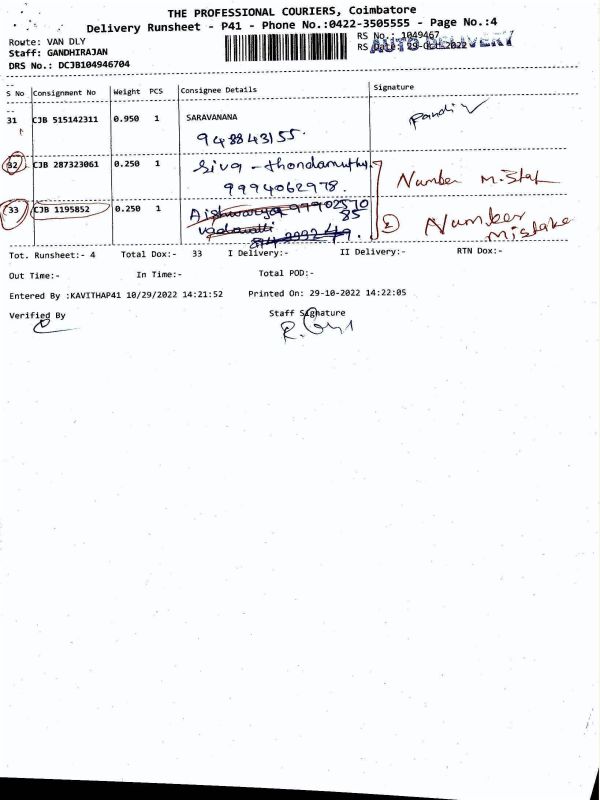 THE PROFESSIONAL COURIERS, Coimbatore
Delivery Runsheet - P41 - Phone No.:0422-3505555 - Page No.:4
Route: VAN DLY
RS No.: 1049467
Staff: GANDHIRAJAN
RS Date: 29-Oct-2022
AUTO DELIVERY
DRS No.: DCJB104946704
S No Consignment No Weight PCS Consignee Details Signature
31 CJB 515142311 0.950 1 SARAVANANA
948843155.
32 CJB 287323061 0.250 1 Siva - thondamuthur
9994062978.
Number Mistak
33 CJB 1195852 0.250 1 Aishwarya 99902510
85
vadavalli
② Number
Mistake
Tot. Runsheet:- 4 Total Dox:- 33 I Delivery:- II Delivery:- RTN Dox:-
Out Time:- In Time:- Total POD:-
Entered By :KAVITHAP41 10/29/2022 14:21:52 Printed On: 29-10-2022 14:22:05
Verified By Staff Signature